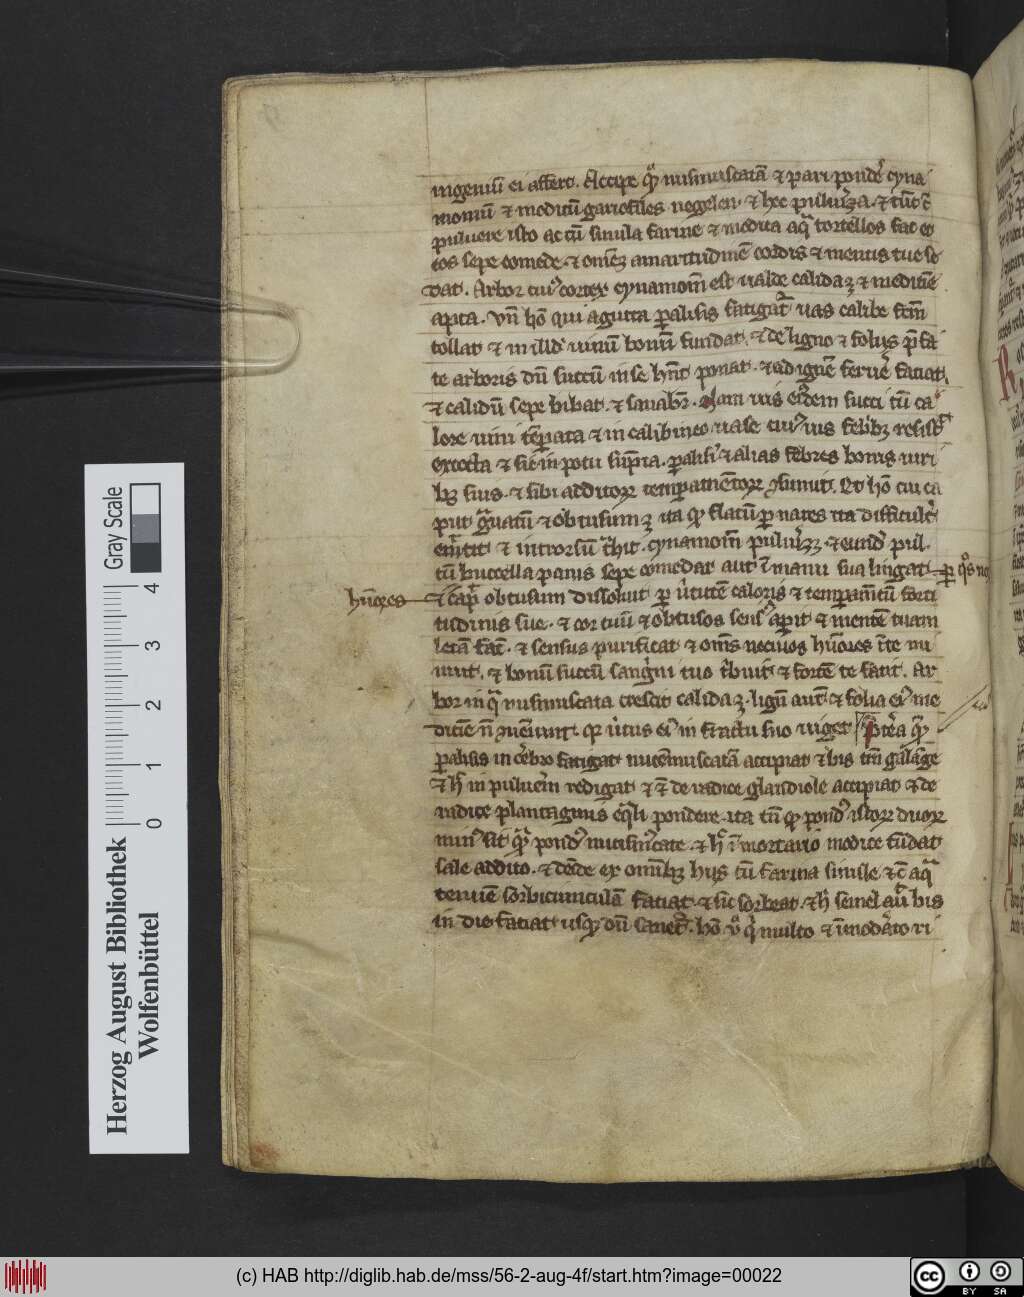 ingeniū ei affert. Accipe q nusmuscatā ⁊ pari pondē cyna
momū ⁊ modicū gariofiles negelen ⁊ hec pulu̇iza ⁊ tūc c̄
puluere isto ac cū simula farine ⁊ modica aq̄ tortellos fac et
eos sepe comede ⁊ om̄ez amaritudinē cordis ⁊ mentis tue se
dat. Arbor cui⁹ cortex cynamom̄ est ualde calida ē ⁊ medicinē
apta. Vn̄ hō qui a gutta paralisis fatigat̄ uas calibe fc̄m
tollat ⁊ in illd uinū bonū fundat ⁊ de ligno ⁊ foliis p̄fa
te arboris dū succū in se hn̄t ponat ⁊ ad ignē feruē faciat
⁊ calidū sepe bibat ⁊ sanabr̄. Nam uis ei⁹dem succi cū ca
lore uini tēpata ⁊ in calibineo uase cui⁹ uis febrib; resist
excocta ⁊ sic in potu sūpta. paralisi ⁊ alias febres bonis uiri
b; suis ⁊ sibi additoꝝ temperamētoꝝ ꝯsumit. Et hō cui ca
put g̃uatū ⁊ obtusum ē ita qd flatū p nares ita difficult̄
emittit ⁊ introrsū t̃hit. cynamom̄ puluizet ⁊ eund pul
uē cū buccella panis sepe comedat aut ī manu sua lingat
p q̊s no
hūores
⁊ capi obtusum dissoluit p u̇tutē caloris ⁊ temperam̄tū forti
tudinis sue ⁊ cor tuū ⁊ obtusos sens⁹ ap̄it ⁊ mentē tuam
letā fac̄ ⁊ sensus purificat ⁊ om̄s nociuos hūores ī te mi
nuit ⁊ bonū succū sangu̇ni tuo t̃buit ⁊ fortē te facit. Ar
bor in q̃ nusmuscata crescit calida ē lignū aut̄ ⁊ folia ei⁹ me
dicīe n̄ ꝯueniunt qr u̇tus ei⁹ in fructu suo uiget P̄terea q̄
palisis in cēbro fatigat nucēmuscatā accipiat ⁊ bis tm̄ galāge
⁊ h̄ in puluerē redigat ⁊ de radice gladiole accipiat ⁊ de
radice plantaginis eq̄li pondere ita tn̄ qd pond⁹ istoꝝ duoꝝ
min⁹ sit q̃ pond⁹ nucismuscate ⁊ h̄ ī mortario modice tūdat
sale addito ⁊ dēde ex omīb; hys cū farina simile ⁊ c̄ aq̃
tenuē sorbiciunculā faciat ⁊ sic sorbeat ⁊ h̄ semel aū bis
in die faciat usq; dū sanet̄. hō u̇ q̇ multo ⁊ īmodato ri
Gray Scale
0 1 2 3 4
Herzog August Bibliothek
Wolfenbüttel
(c) HAB http://diglib.hab.de/mss/56-2-aug-4f/start.htm?image=00022
cc BY SA